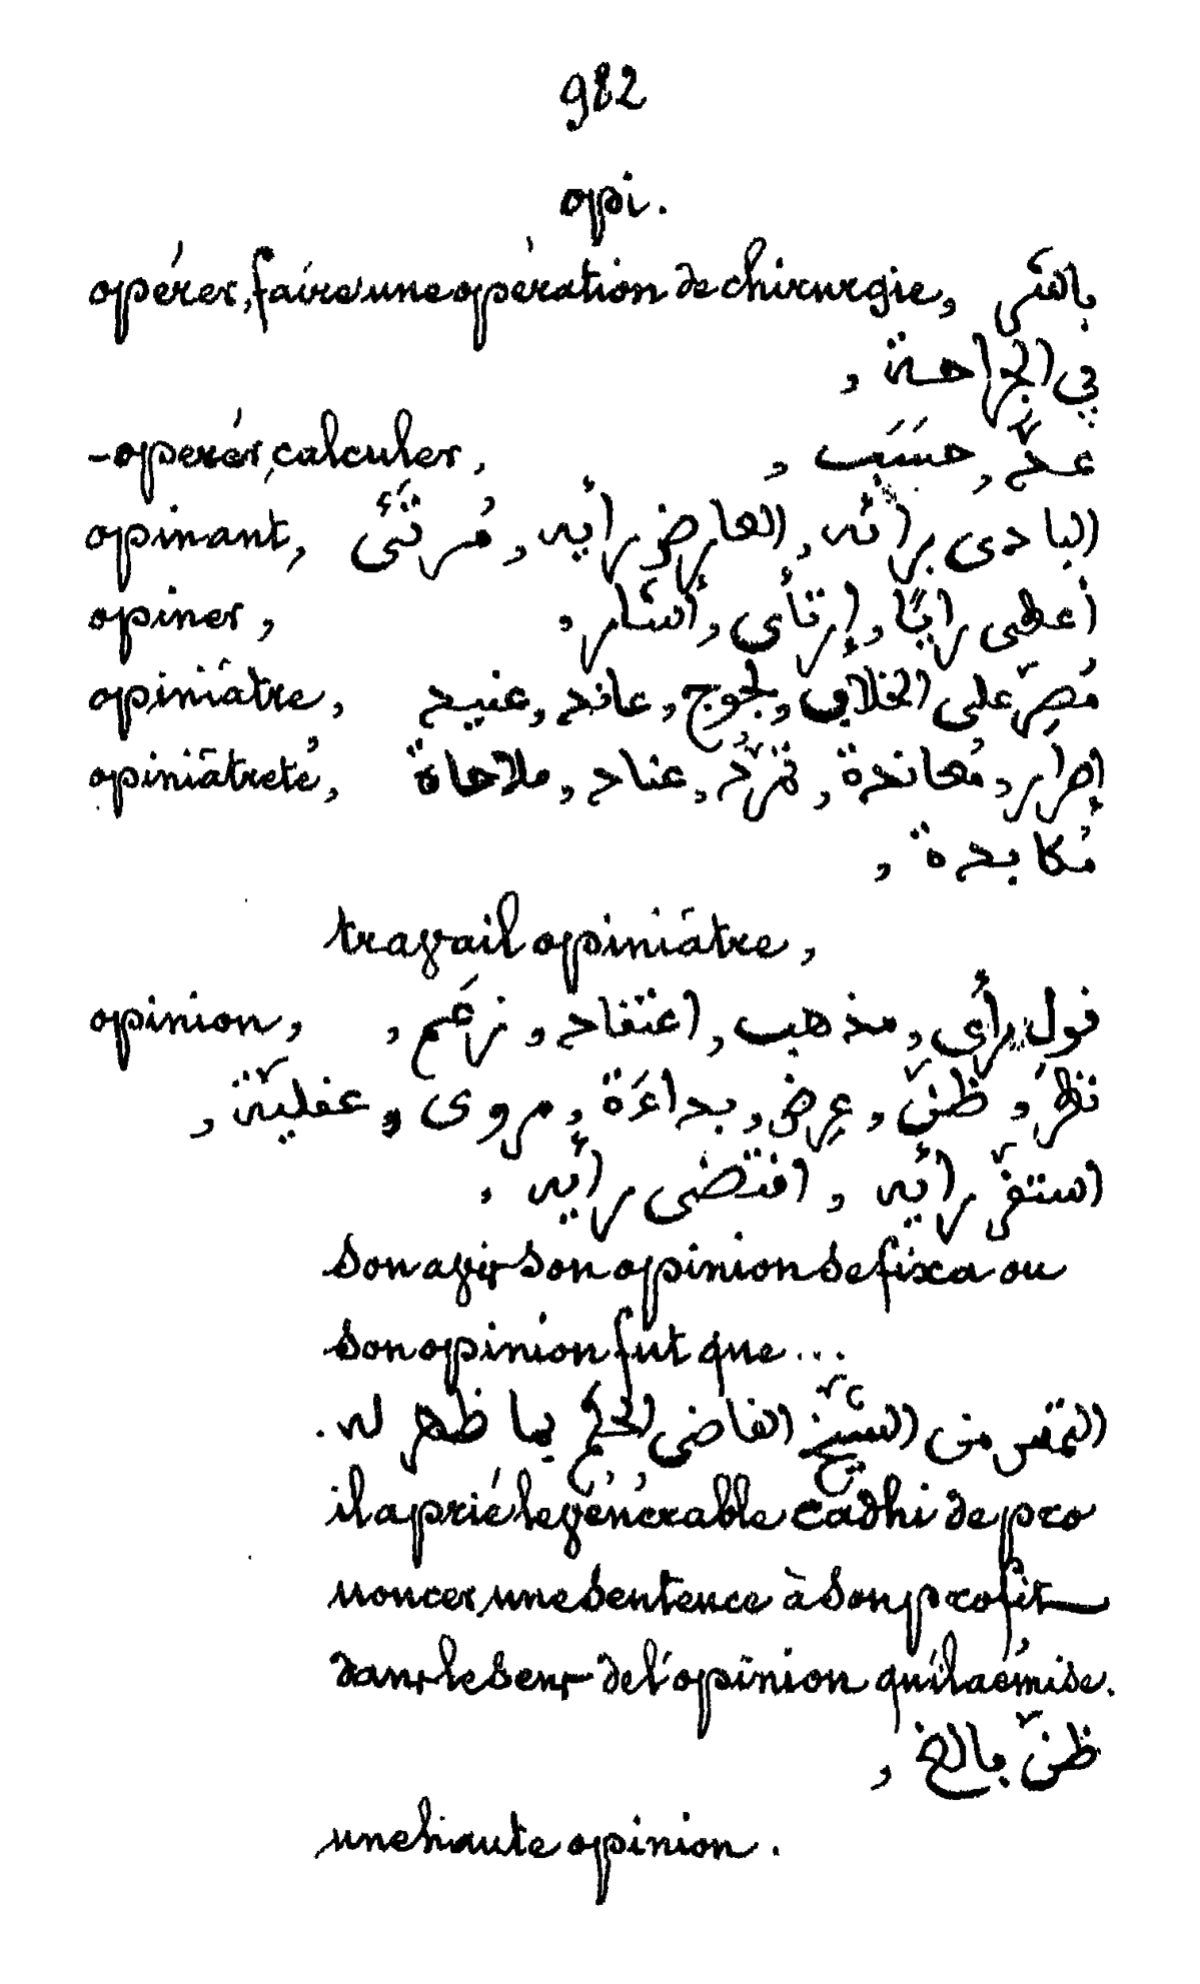 982
opi.
opérer, faire une opération de chirurgie, باشَر
في الجراحة ,
- operér, calculer, عدّ, حسَبَ ,
opinant, البادى برائه, العارض رأيه, مُرتَئى
opiner, أعطى رايًا, إرتأى, أشار,
opiniâtre, مُصِرّ على الخلاف, لجوج, عاند, عنيد
opiniâtreté, إصرار, مُعاندة, تمرّد, عناد, ملاحاة
مُكابدة ,
travail opiniâtre,
opinion, قول, رأى, مذهب, اعتقاد, زعَم ,
نظر, ظنّ, عِرض, بداءَة, مروى, عقليّة ,
استقرّ رأيه , اقتضى رأيه ,
son avis son opinion se fixa ou
son opinion fut que ...
التمَس من الشيّخ القاضى الحكم بما ظهر له .
il a prié le vénérable cadhi de pro
noncer une sentence à son profit
dans le sens de l'opinion qu'il a émise.
ظنّ بالغ ,
une haute opinion .